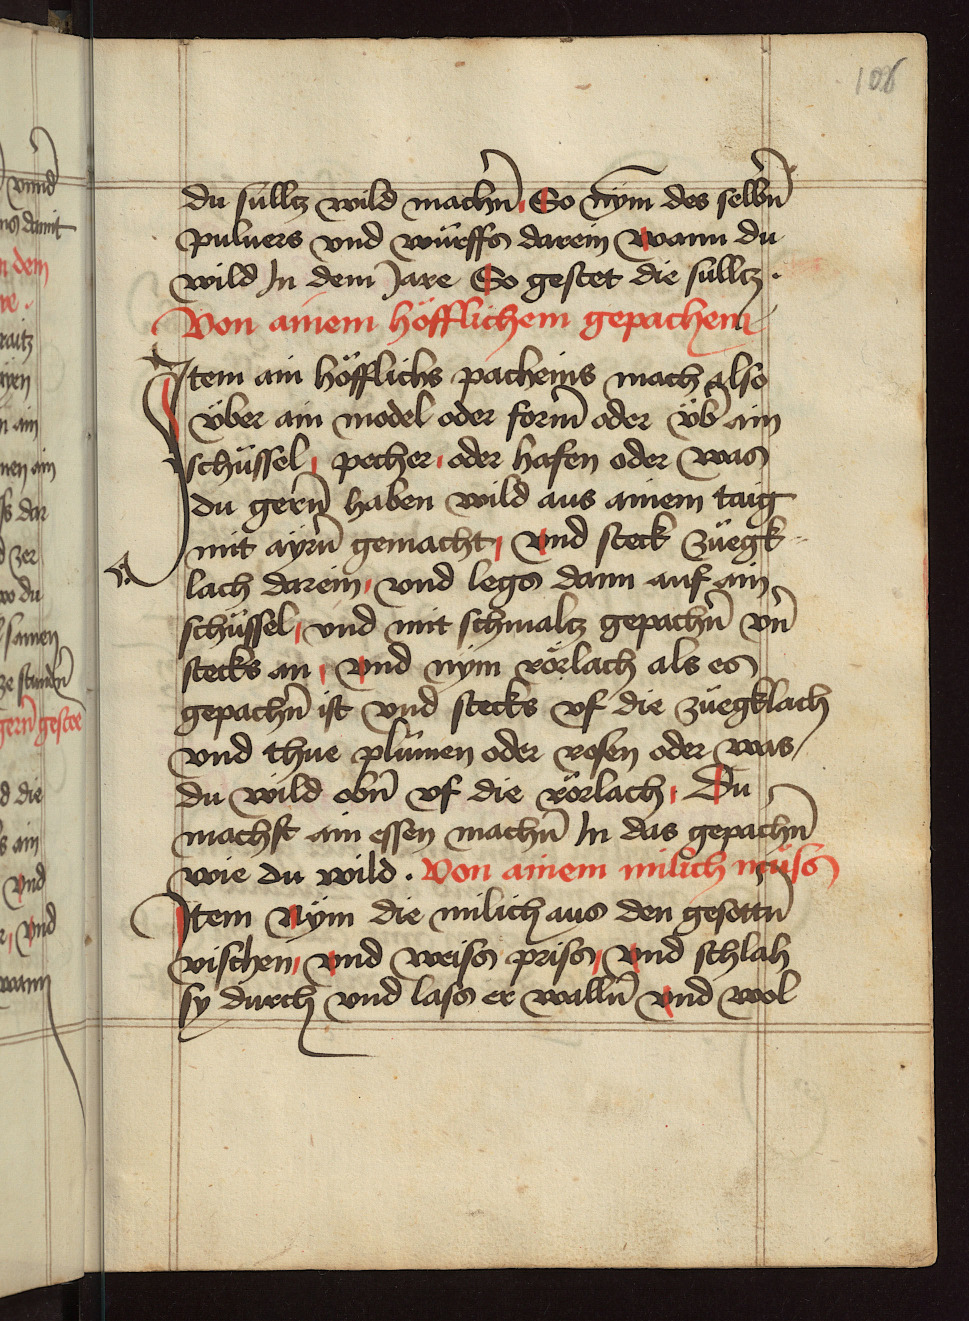 108
du sulltz wild machn̄ So nym̄ des selbn̄
puluers vnd würffs darein wann du
wild In dem Jare So gestet die sulltz .
Von ainem höfflichem gepachem
Item ain höfflichs pacheins mach also
über ain model oder form̄ oder üb̄ ain
schüssel , pecher , oder hafen oder was
du gern̄ haben wild aus ainem taig
mit ayrn̄ gemacht , vnd steck züegk
lach darein , vnd legs dann auf ain
schüssel , vnd mit schmaltz gepachn̄ vn̄
stecks an , vnd nym rörlach als es
gepachn̄ ist vnd stecks vf die züegklach
vnd thue plümen oder rosen oder was
du wild obn̄ vf die rörlach , Du
machst ain essen machn̄ In das gepachn̄
wie du wild . Von ainem milich müss
Item Nym die milich aus den gesottn̄
vischen , vnd weiss priss , vnd schlah
sy durch vnd lass er walln̄ vnd wol